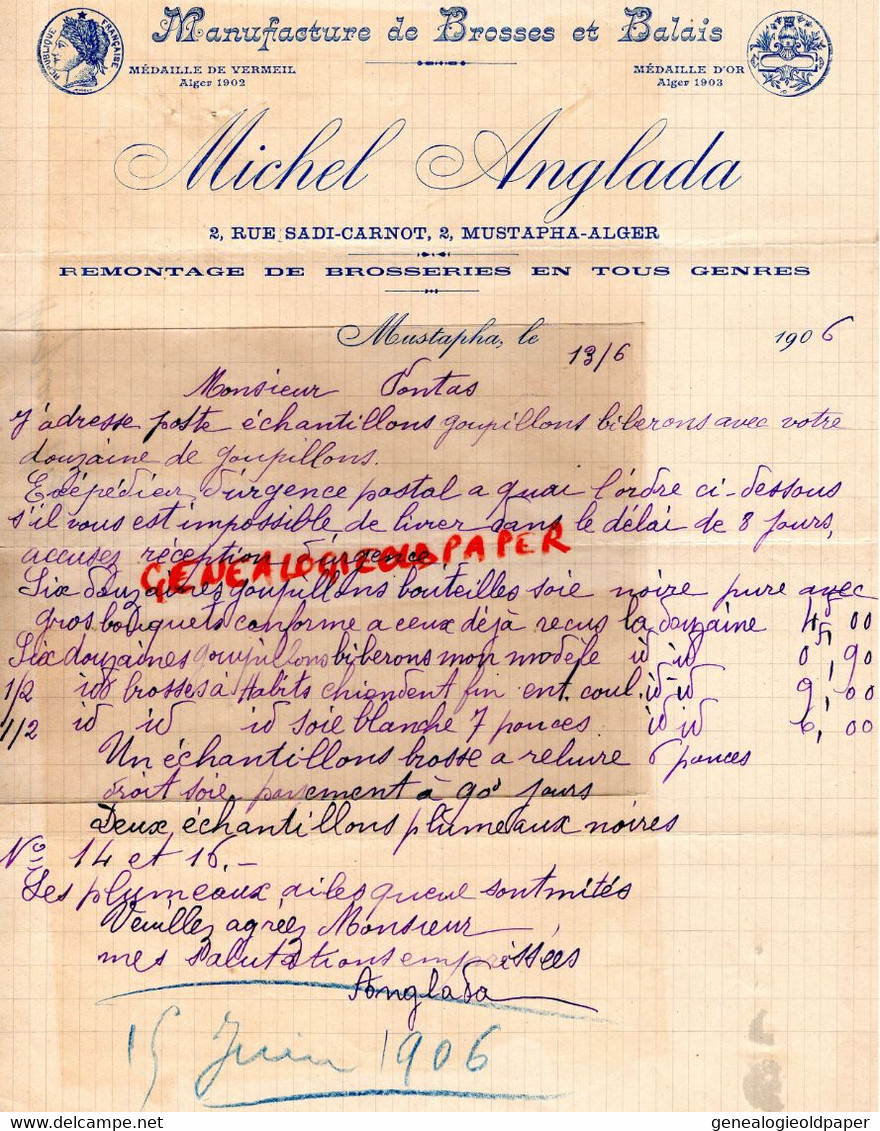 Manufacture de Brosses et Balais
RÉPUBLIQUE FRANÇAISE
MÉDAILLE DE VERMEIL
Alger 1902
MÉDAILLE D'OR
Alger 1903
Michel Anglada
2, RUE SADI-CARNOT, 2, MUSTAPHA-ALGER
REMONTAGE DE BROSSERIES EN TOUS GENRES
Mustapha, le 13/6 1906
Monsieur Pontas
J'adresse poste échantillons goupillons biberons avec votre
douzaine de goupillons.
Exépédier d'urgence postal a quai l'ordre ci-dessous
s'il vous est impossible de livrer dans le délai de 8 jours,
accusez réception d'urgence
GENEALOGIEOLDPAPER
Six douzaines goupillons bouteilles soie noire pure avec
gros bouquets conforme a ceux déjà recus la douzaine 4, 00
Six douzaines goupillons biberons mon modèle id id 0, 90
1/2 id brosses à Habits chiendent fin ent. coul. id id 9, 00
1/2 id id id soie blanche 7 pouces id id 6, 00
Un échantillons brosse a reluire 6 pouces
droit soie, payement à 90 jours
Deux échantillons plumeaux noires
No 14 et 16.-
Les plumeaux ailes queue sont mités
Veuillez agréez Monsieur
mes salutations empréssées
Anglada
15 Juin 1906
www.delcampe.net
genealogieoldpaper